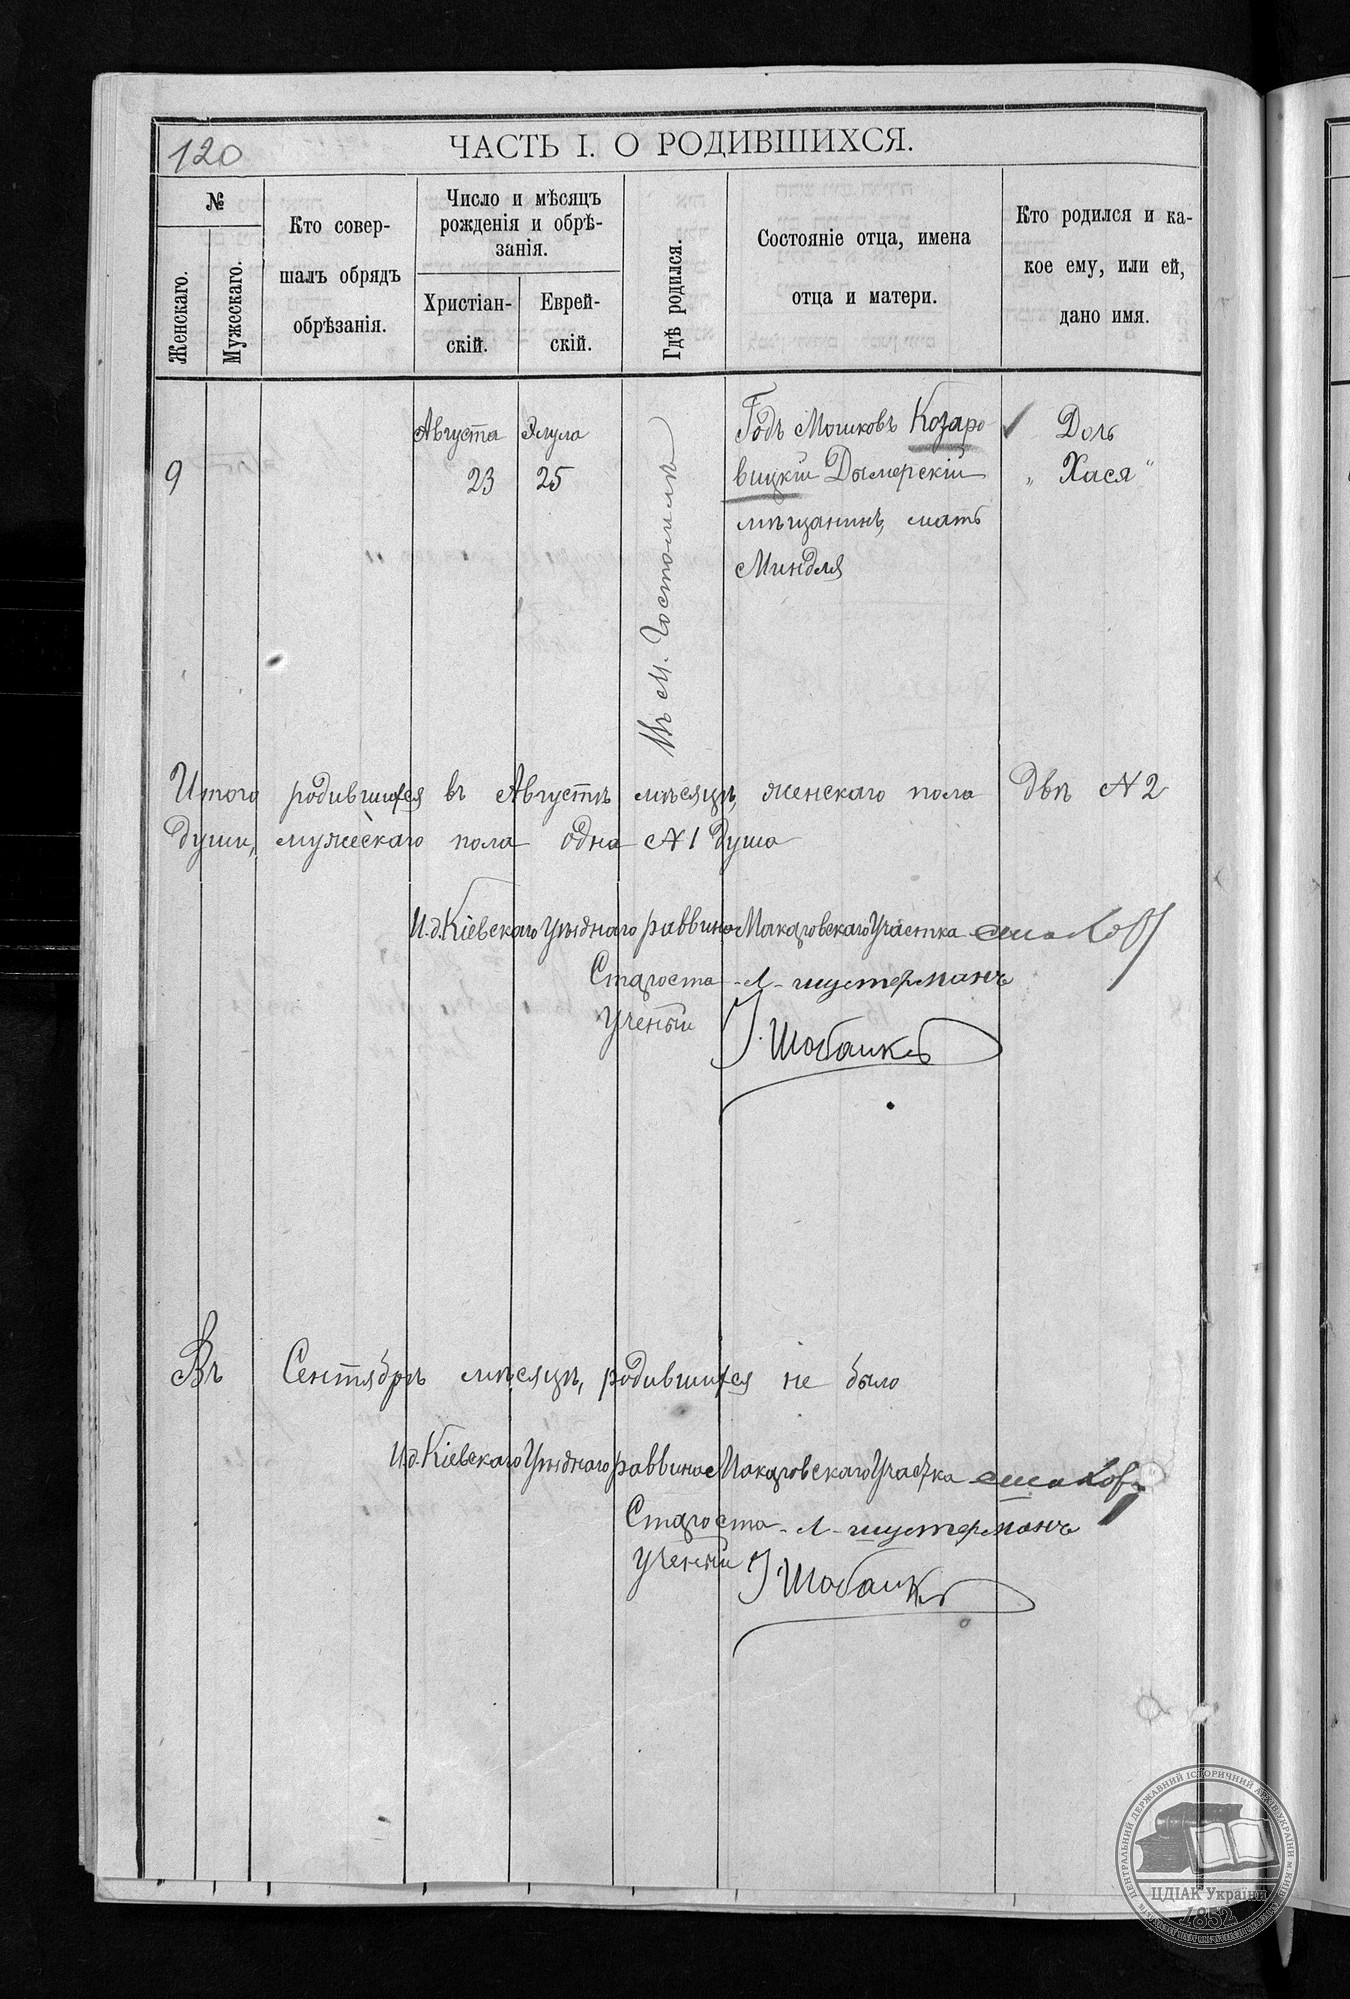 120
ЧАСТЬ I. О РОДИВШИХСЯ.
№
Женскаго.
Мужескаго.
Кто совер-
шалъ обрядъ
обрѣзанія.
Число и мѣсяцъ
рожденія и обрѣ-
занія.
Христіан-
скій.
Еврей-
скій.
Гдѣ родился.
Состояніе отца, имена
отца и матери.
Кто родился и ка-
кое ему, или ей,
дано имя.
9
Августа
23
Элула
25
Въ м. Гостомлѣ
Годъ Мошковъ Козаро
вицкій Дымерскій
мѣщанинъ, мать
Миндля
Дочь
„ Хася "
Итого родившихся въ Августѣ мѣсяцѣ, женскаго пола двѣ №2
души, мужескаго пола одна №1 душа
И.д. Кіевскаго Уѣзднаго раввина Макаровскаго Участка
Староста Л. Шустерманъ
Ученый
Въ Сентябрѣ мѣсяцѣ, родившихся не было
И.д. Кіевскаго Уѣзднаго раввина Макаровскаго Участка
Староста Л. Шустерманъ
Ученый
ЦЕНТРАЛЬНИЙ ДЕРЖАВНИЙ ІСТОРИЧНИЙ АРХІВ УКРАЇНИ М. КИЇВ
ЦДІАК України
1852